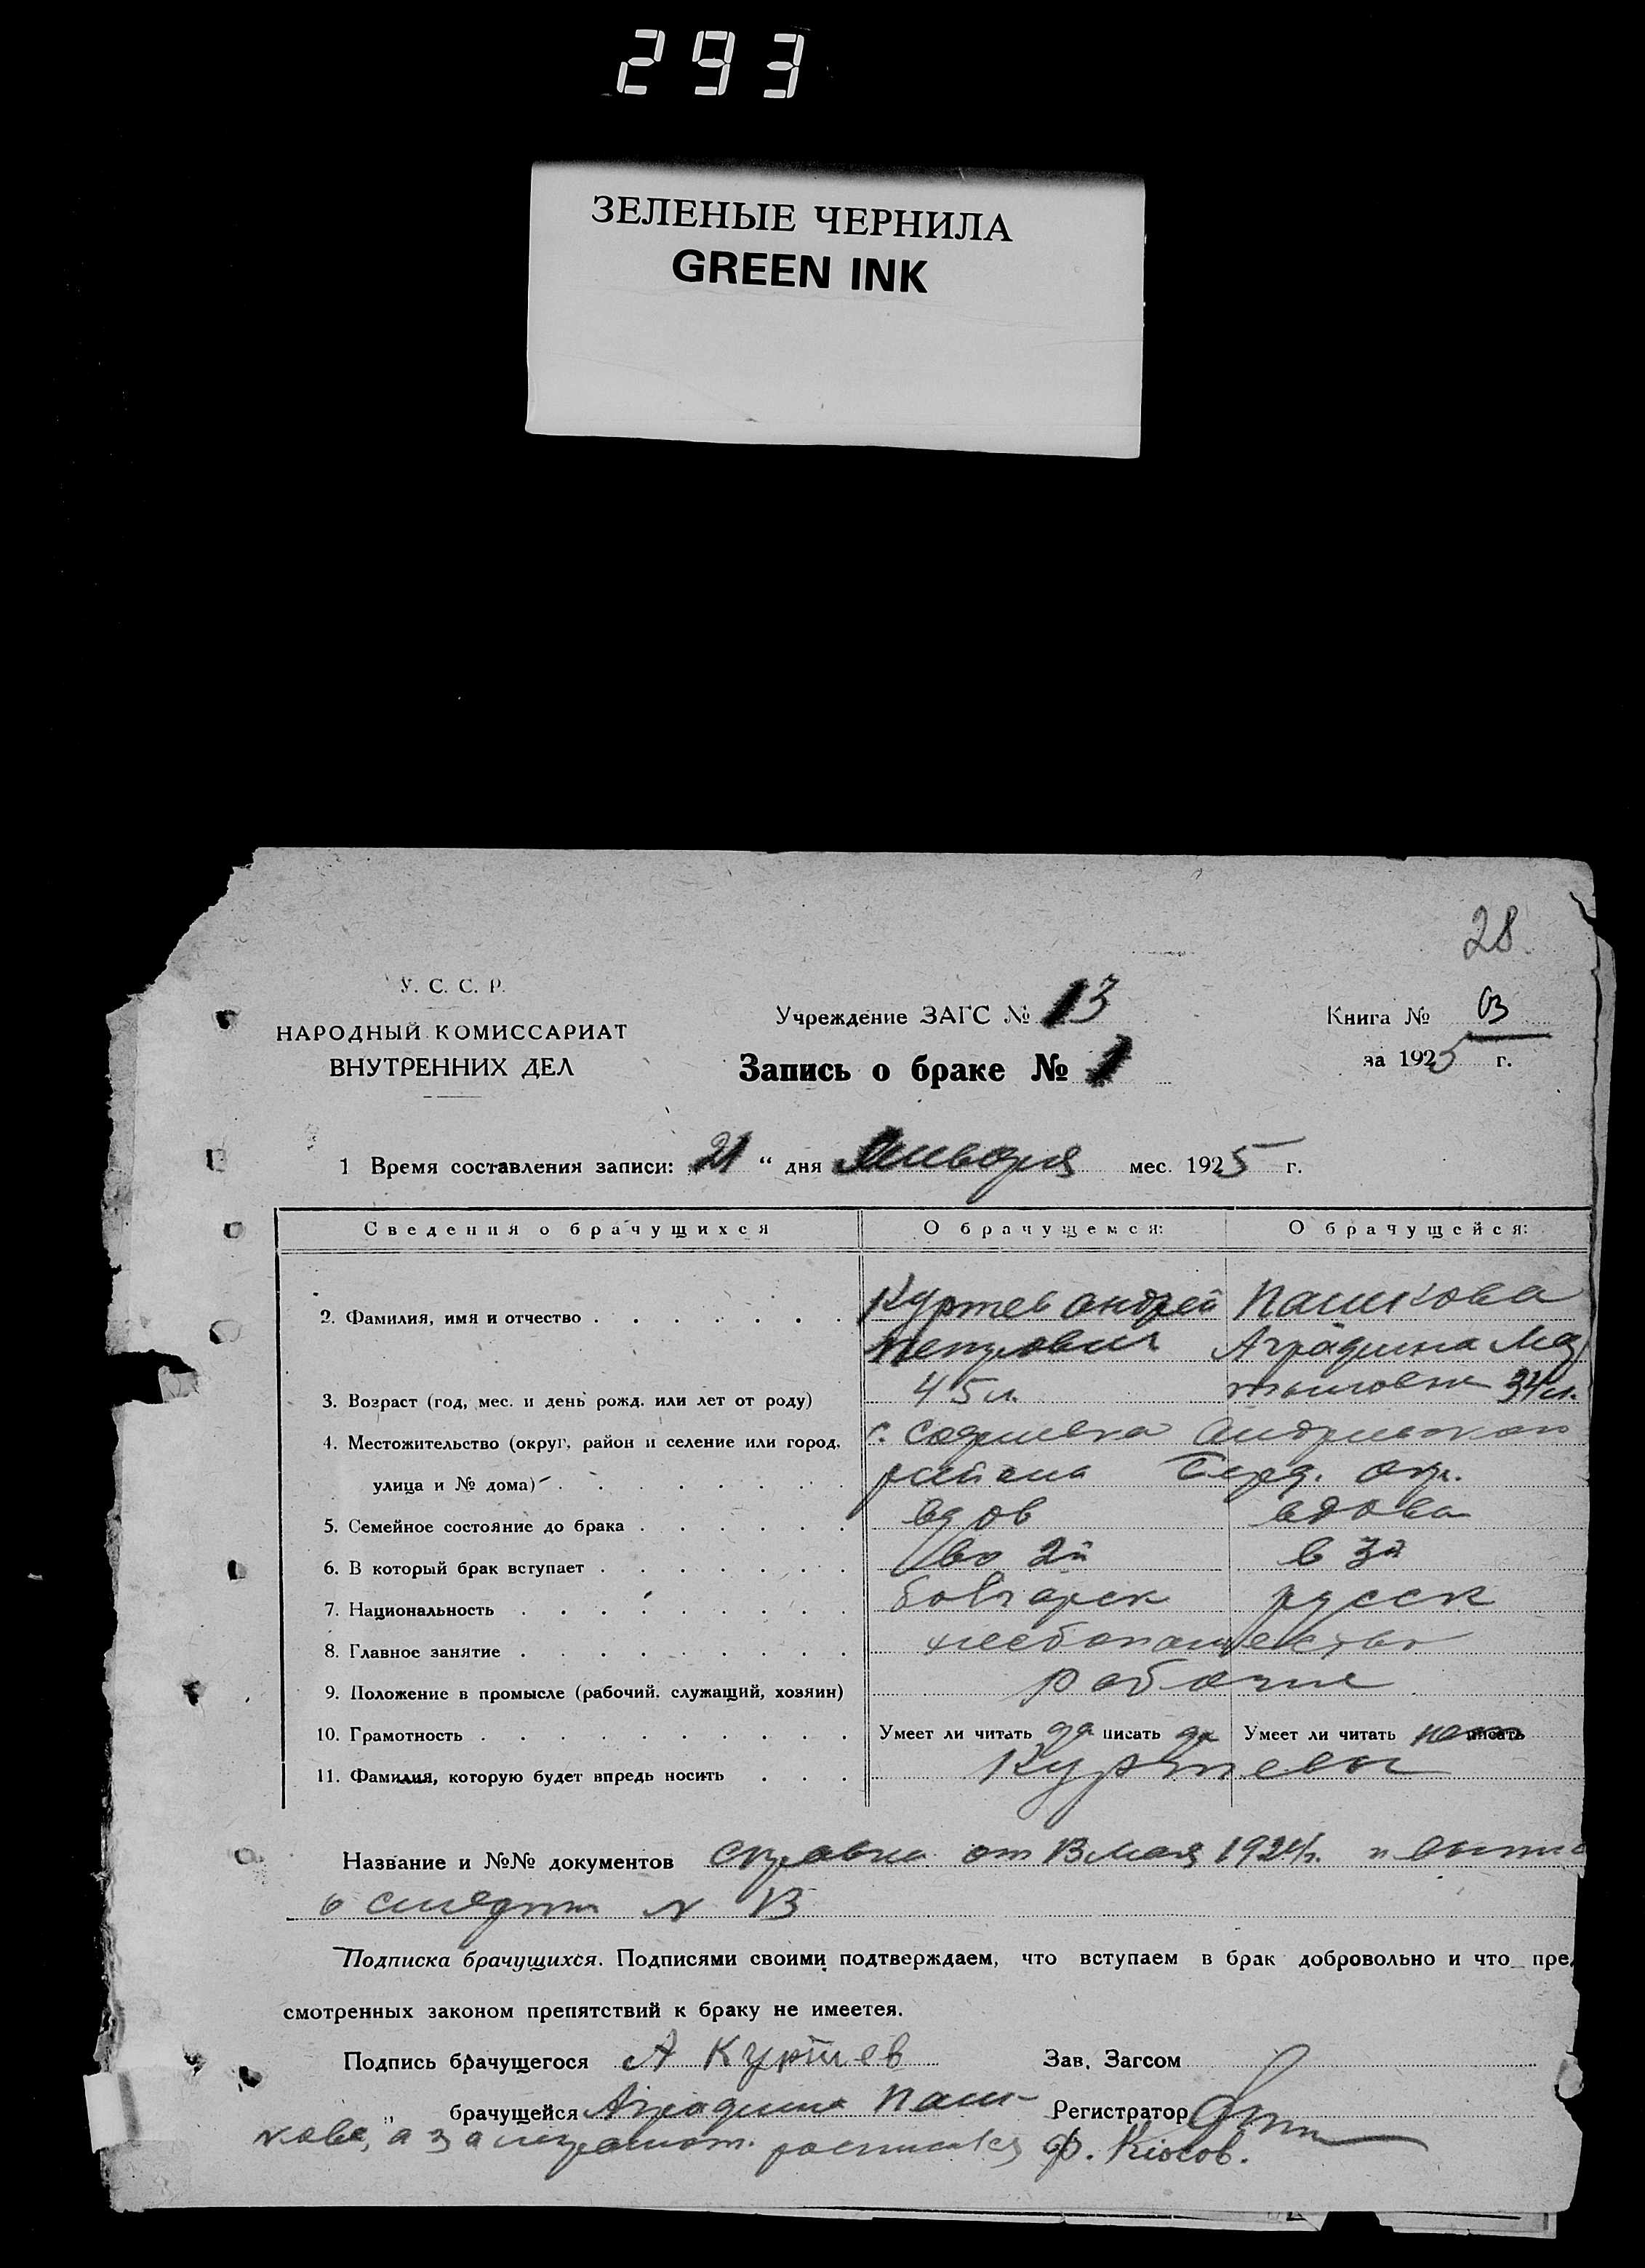 293
ЗЕЛЕНЫЕ ЧЕРНИЛА
GREEN INK
28.
У. С. С. Р.
НАРОДНЫЙ КОМИССАРИАТ
ВНУТРЕННИХ ДЕЛ
Учреждение ЗАГС № 13
Запись о браке № 1
Книга №
за 1925 г.
1 Время составления записи: „21“ дня Января мес. 1925 г.
Сведения о брачущихся О брачущемся: О брачущейся:
2. Фамилия, имя и отчество Куртев Андрей Пашкова
Петрович Аграфина
3. Возраст (год, мес. и день рожд. или лет от роду) 45 л. 34 л.
4. Местожительство (округ, район и селение или город, с. Софиевка Андриевского
улица и № дома) района Берд. окр.
5. Семейное состояние до брака вдов вдова
6. В который брак вступает во 2й в 3й
7. Национальность болгарск русск
8. Главное занятие хлебопашество
9. Положение в промысле (рабочий, служащий, хозяин) рабочие
10. Грамотность Умеет ли читать да писать да Умеет ли читать нет писать
11. Фамилия, которую будет впредь носить Куртевы
Название и №№ документов справка от 13 мая 1924 г. и
о N 13
Подписка брачущихся. Подписями своими подтверждаем, что вступаем в брак добровольно и что пред
смотренных законом препятствий к браку не имеетея.
Подпись брачущегося А Куртев Зав. Загсом
„ брачущейся Аграфина Паш- Регистратор
кова, а за неграмотн. расписался Ф.